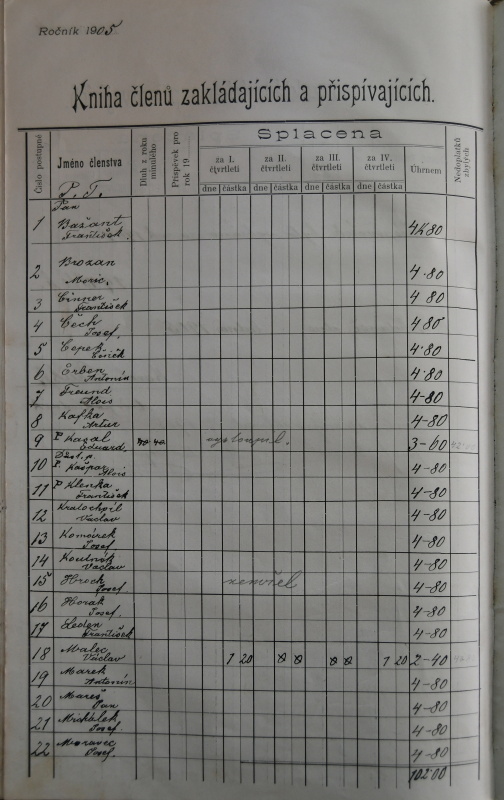 Ročník 1905.
Kniha členů zakládajících a přispívajících.
Číslo postupné
Jméno členstva
Dluh z roku minulého
Příspěvek pro rok 19
Splacena
za I. čtvrtletí
za II. čtvrtletí
za III. čtvrtletí
za IV. čtvrtletí
Úhrnem
Nedoplatků zbývých
dne částka dne částka dne částka dne částka
P. T.
Pan
1 Bažant František. 4K80
2 Brozan Moric. 4·80
3 Cinner František 4 80
4 Čech Josef. 4 80
5 Čepek 4·80
6 Erben Antonín 4·80
7 Freund Alois 4-80
8 Kafka Artur 4-80
9 P. Kasal Eduard. vystoupil. 3-60
10 P. Kašpar Alois 4-80
11 P Klenka František 4-80
12 Kratochvil Václav 4-80
13 Komárek Josef 4-80
14 Koutník Václav 4-80
15 Hroch Josef. zemřel 4-80
16 Horák Josef. 4-80
17 Leden František 4-80
18 Malec Václav 1 20 0 0 0 0 1 20 2-40
19 Marek Antonín 4-80
20 Mareš Jan 4-80
21 Michálek Josef. 4-80
22 Moravec Josef. 4-80
102·00